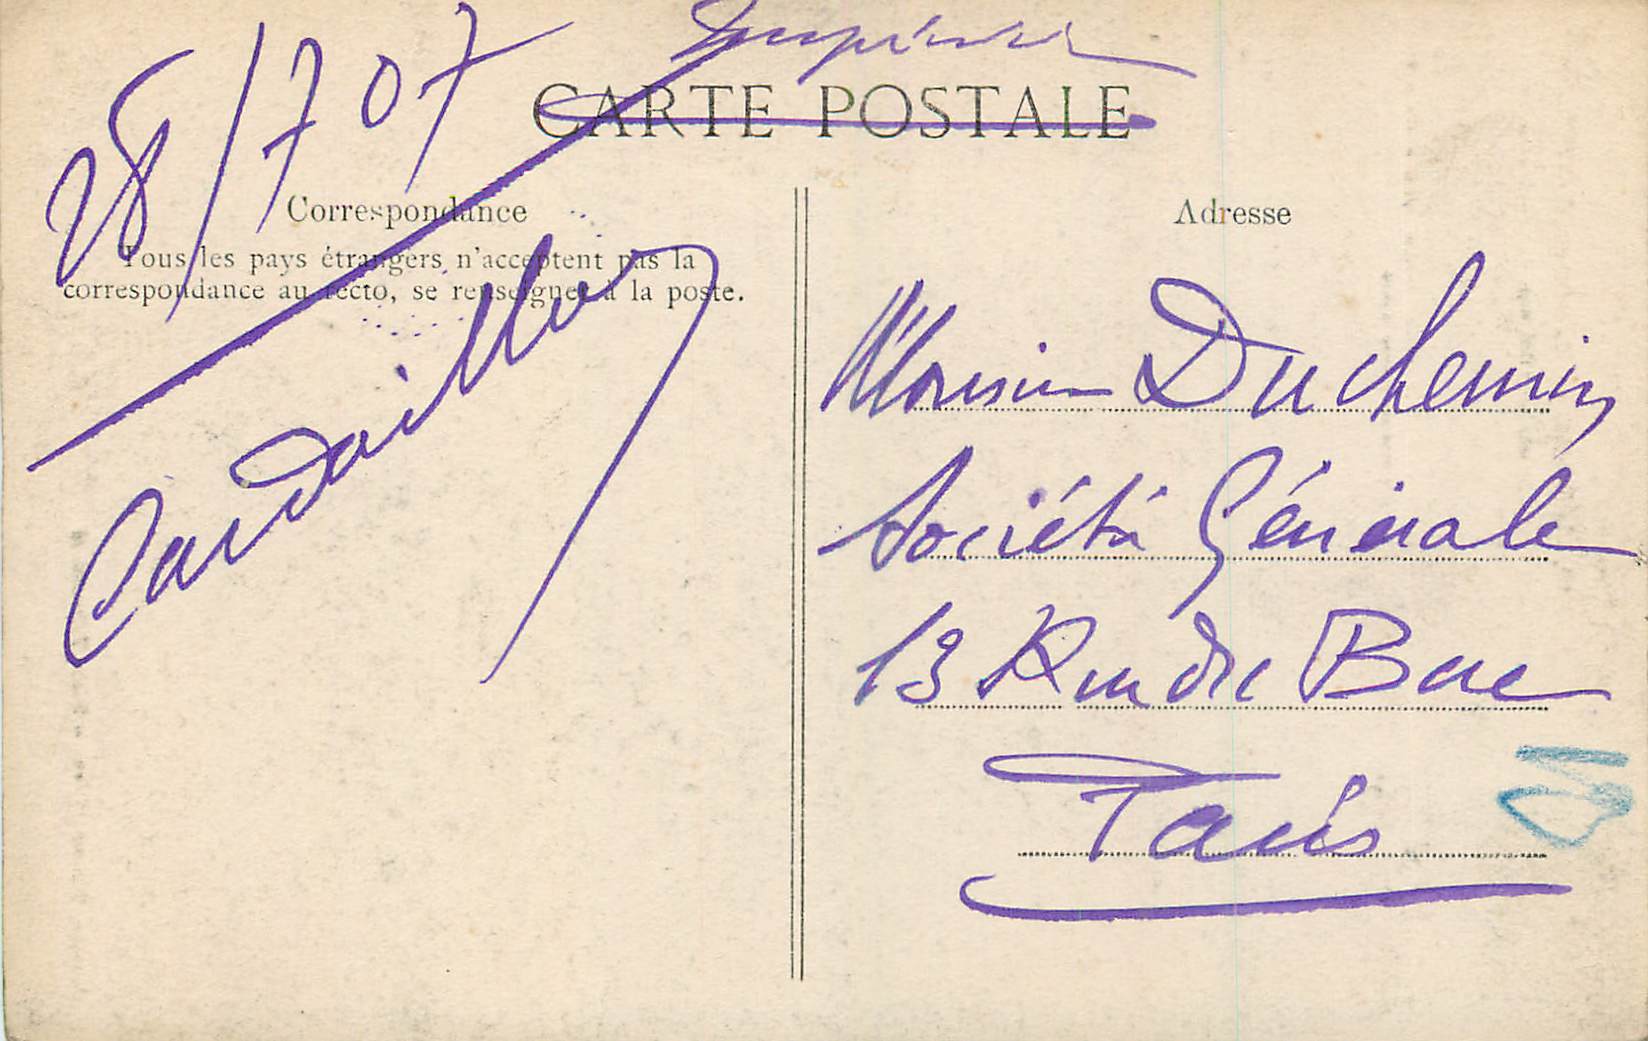 Imprimé
CARTE POSTALE
28/7 07
Correspondance
Tous les pays étrangers n'acceptent pas la
correspondance au recto, se renseigner à la poste.
Adresse
Monsieur Duchemin
Société Générale
13 Rue du Bac
Paris